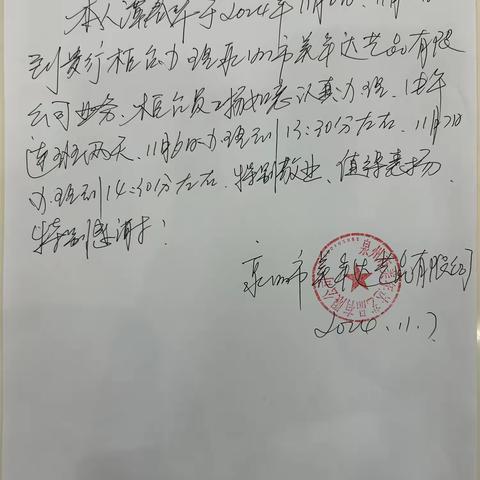 本人 于2024年11月6日、11月7日
到贵行柜台办理泉州市美年达艺品有限
公司业务、柜台员工杨如意认真办理、中午
连班两天、11月6日办理到13:30分左右、11月7日
办理到14:30分左右、特别敬业、值得表扬、
特别感谢!
泉州市美年达艺品有限公司
2024.11.7